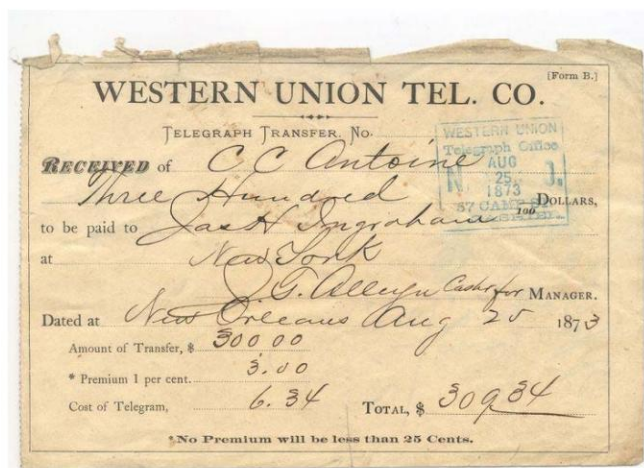 [Form B.]
WESTERN UNION TEL. CO.
TELEGRAPH TRANSFER. No.
WESTERN UNION
Telegraph Office
AUG
25
1873
N. J.
57 CAMP St.
RECEIVED of C C Antoine
Three Hundred 100 DOLLARS,
to be paid to Jas H Ingraham
at New York
J. G. Alleyn Cashr for MANAGER.
Dated at New Orleans Aug 25 1873
Amount of Transfer, $ 300 00
* Premium 1 per cent. 3.00
Cost of Telegram, 6.34 TOTAL, $ 309 34
*No Premium will be less than 25 Cents.